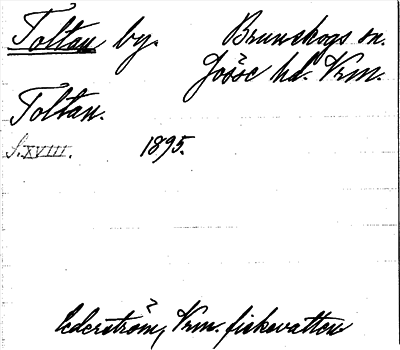 Toltan by. Brunskogs sn.
Jösse hd. Vrm.
Toltan.
S. XVIII. 1895.
Cederström, Vrm. fiskevatten